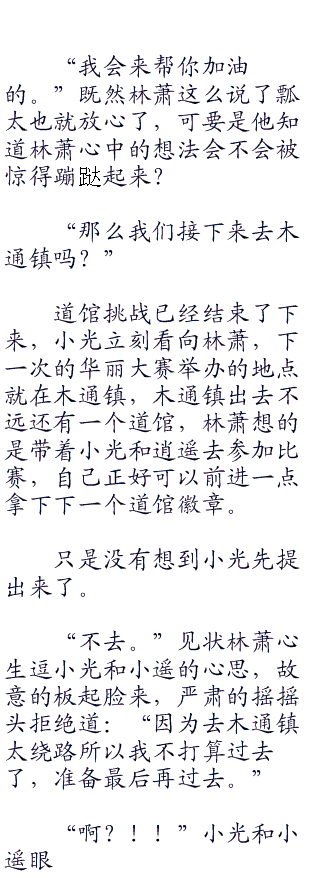 “我会来帮你加油
的。”既然林萧这么说了瓢
太也就放心了，可要是他知
道林萧心中的想法会不会被
惊得蹦跶起来？
“那么我们接下来去木
通镇吗？”
道馆挑战已经结束了下
来，小光立刻看向林萧，下
一次的华丽大赛举办的地点
就在木通镇，木通镇出去不
远还有一个道馆，林萧想的
是带着小光和逍遥去参加比
赛，自己正好可以前进一点
拿下下一个道馆徽章。
只是没有想到小光先提
出来了。
“不去。”见状林萧心
生逗小光和小遥的心思，故
意的板起脸来，严肃的摇摇
头拒绝道：“因为去木通镇
太绕路所以我不打算过去
了，准备最后再过去。”
“啊？！！”小光和小
遥眼